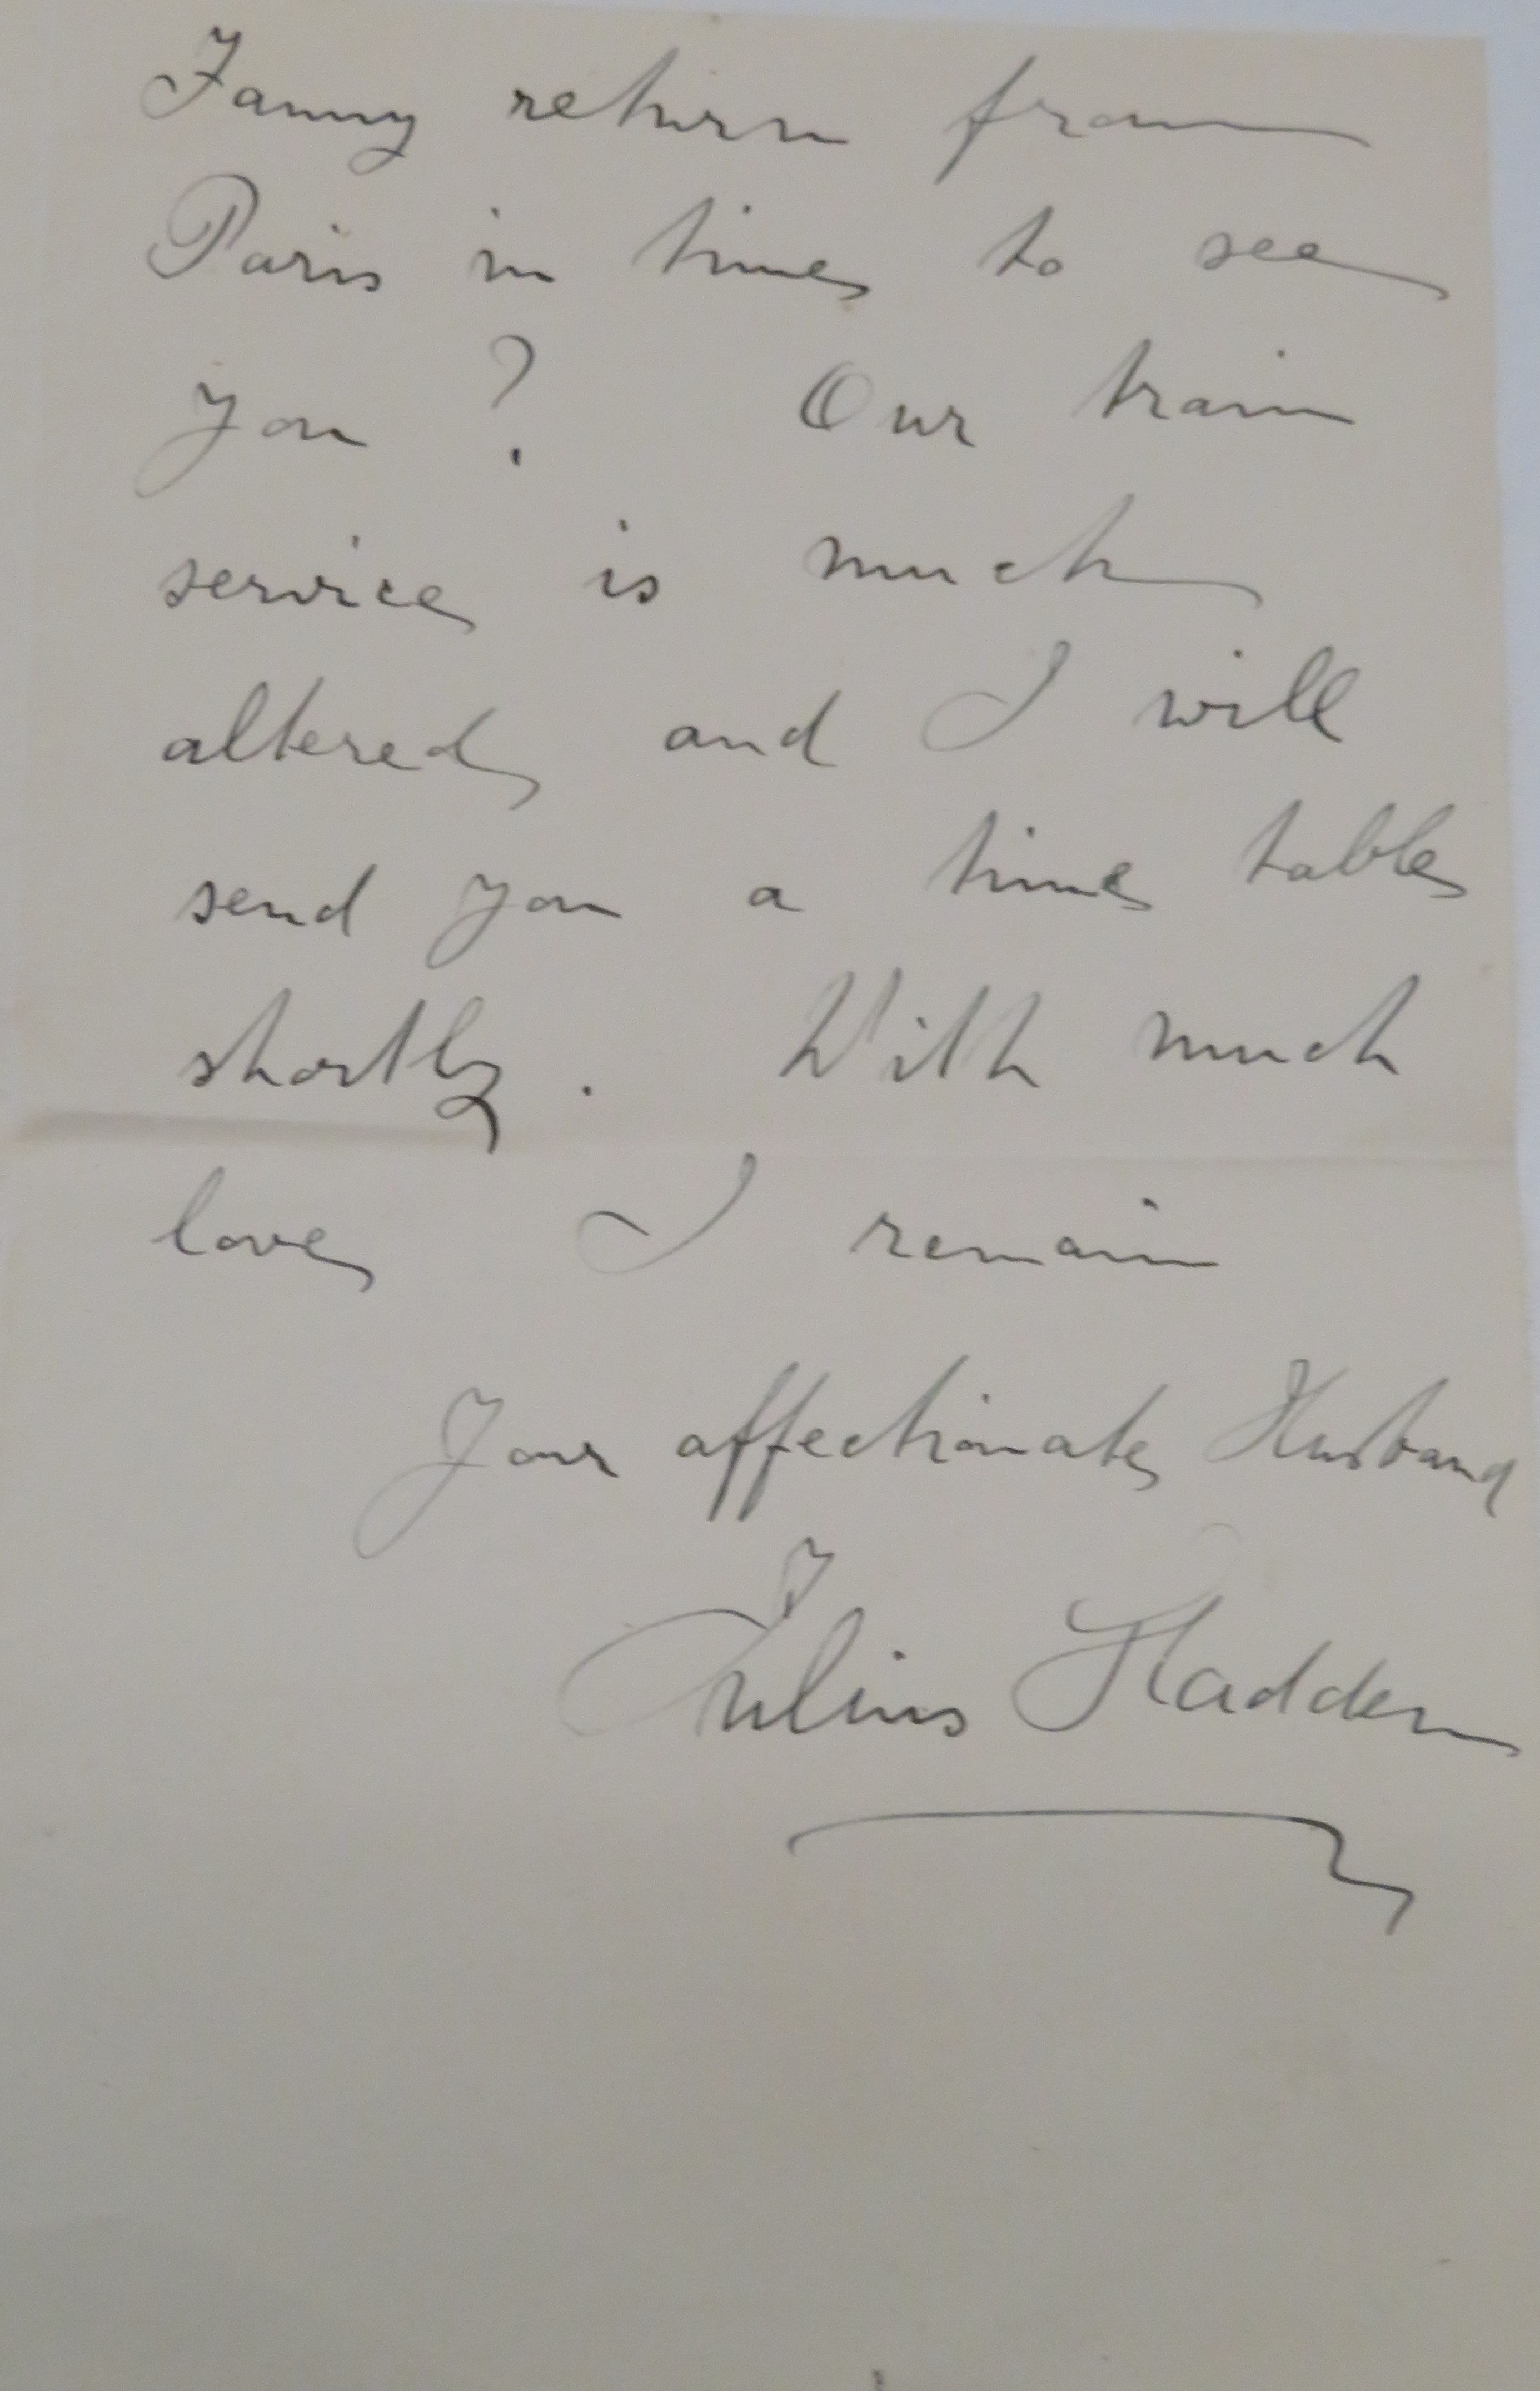 Fanny return from
Paris in time to see
you ? Our train
service is much
altered and I will
send you a time table
shortly . With much
love I remain
Your affectionate Husband
Julius Hadden